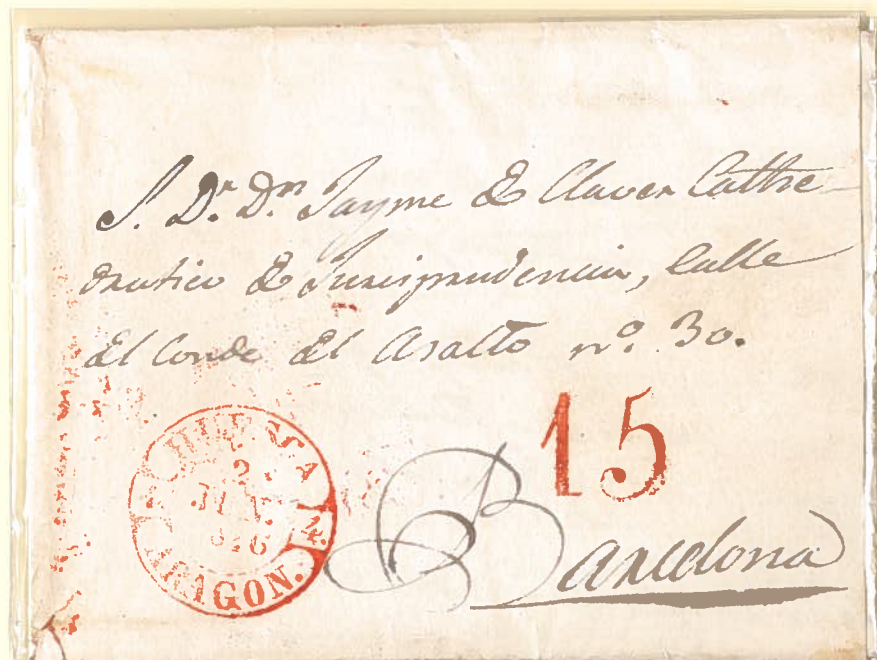 S. Dr. Dn. Jayme de Claver Cathe-
dratico de Jurisprudencia, Calle
del Conde del Asalto nº. 30.
15
ARAGON.
Barcelona